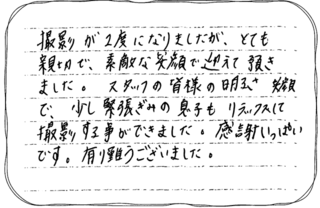 撮影が2度になりましたが、とても
親切で、素敵な笑顔で迎えて頂き
ました。スタッフの皆様の明るさ 笑顔
で、少し緊張ぎみの息子も リラックスして
撮影する事ができました。感謝いっぱい
です。有り難うございました。